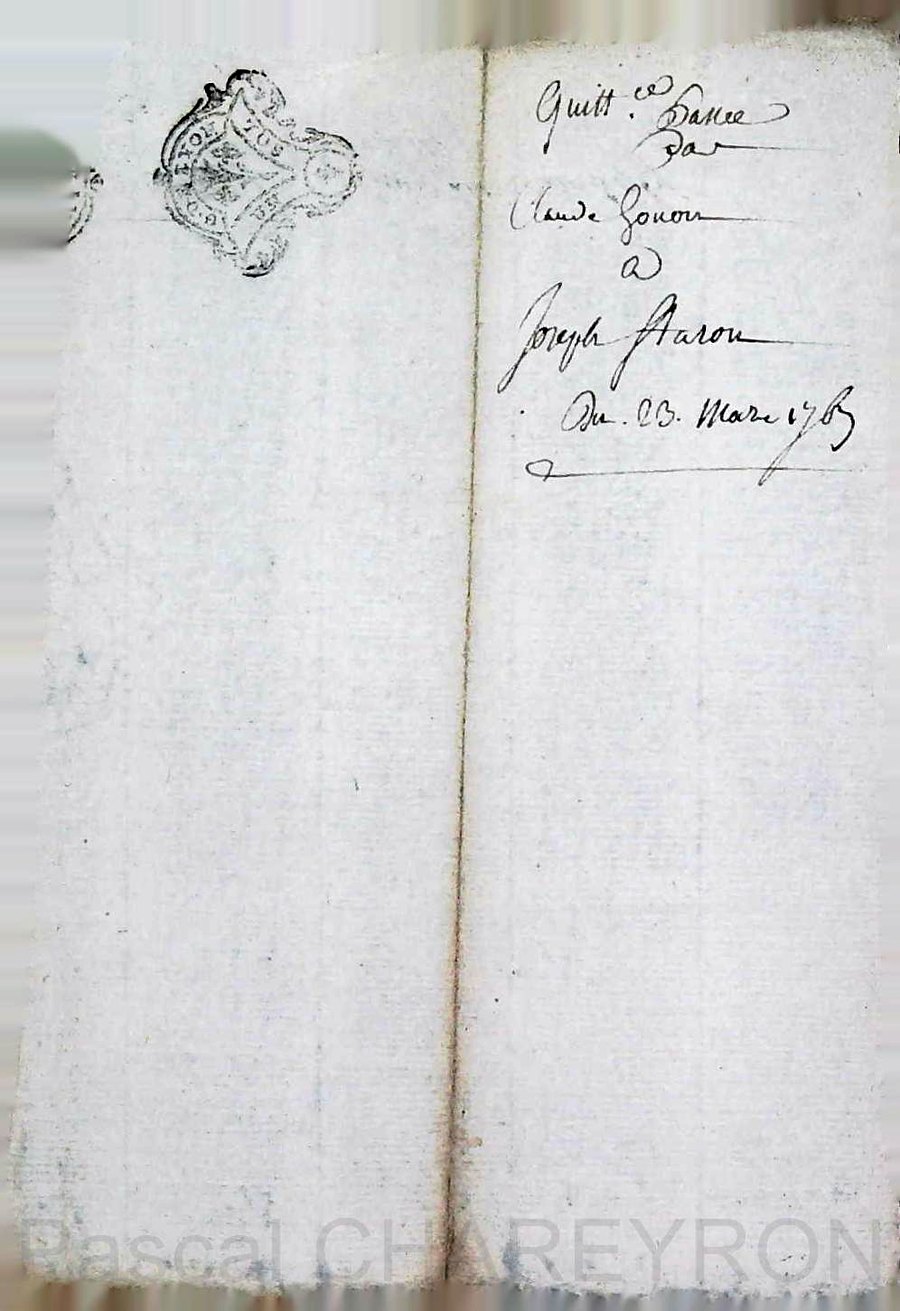 Quitt.ce Passée
Par
Claude Gonon
a
Joseph Staron
Du. 23. Mars 176
Pascal CHAREYRON